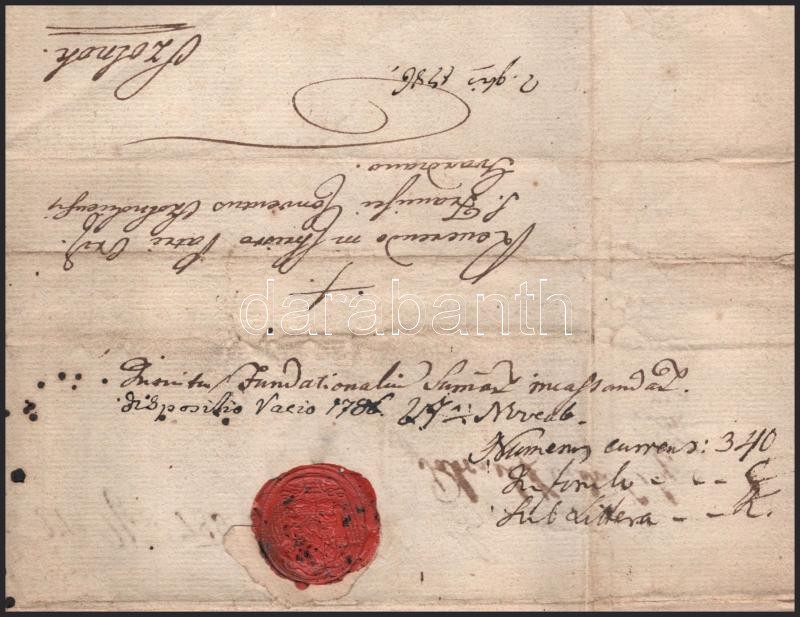 Szolnok.
2. 9bris 1786.
Reverendo in Christo Patri Ord.
S. Francisci Conventus Szolnokiensis
Guardiano.
darabanth
Fundationalium Summar incassandar
dispositio Vacio 1786. 27 Novemb.
Numerus currens: 340
Sub Littera - - K.